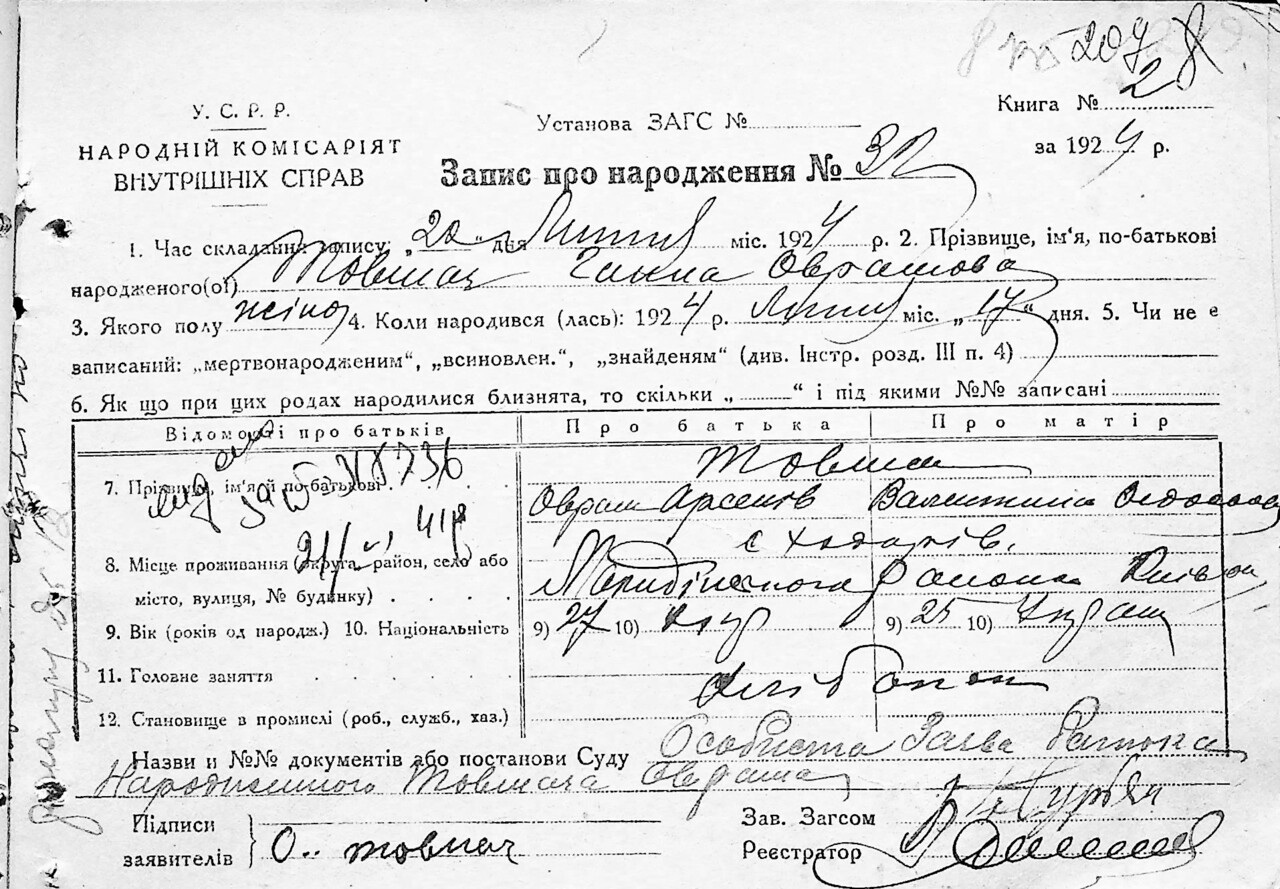 209
У. С. Р. Р.
НАРОДНІЙ КОМІСАРІЯТ
ВНУТРІШНІХ СПРАВ
Установа ЗАГС №
Книга № 2
за 1924 р.
Запис про народження № 32
1. Час складання запису: „20“ дня Лютня міс. 1924 р. 2. Прізвище, ім'я, по-батькові
народженого(ої) Товмач Ганна Оврамова
3. Якого полу жіноч 4. Коли народився (лась): 1924 р. Лютня міс. „17“ дня. 5. Чи не є
записаний: „мертвонародженим“, „всиновлен.“, „знайденям“ (див. Інстр. розд. III п. 4)
6. Як що при цих родах народилися близнята, то скільки „ “ і під якими №№ записані
Відомості про батьків Про батька Про матір
7. Прізвище, ім'я й по-батькові Товмач
Оврам Арсенів Валентина
8. Місце проживання (округа, район, село або с Ходорів,
місто, вулиця, № будинку) района
9. Вік (років од народж.) 10. Національність 9) 27 10) Укр 9) 25 10) Украин
11. Головне заняття хлібопаш
12. Становище в промислі (роб., служб., хаз.)
Назви и №№ документів або постанови Суду Особиста Заява Батька
Народженного Товмача Оврама
Підписи
заявителів О. Товмач
Зав. Загсом
Реєстратор